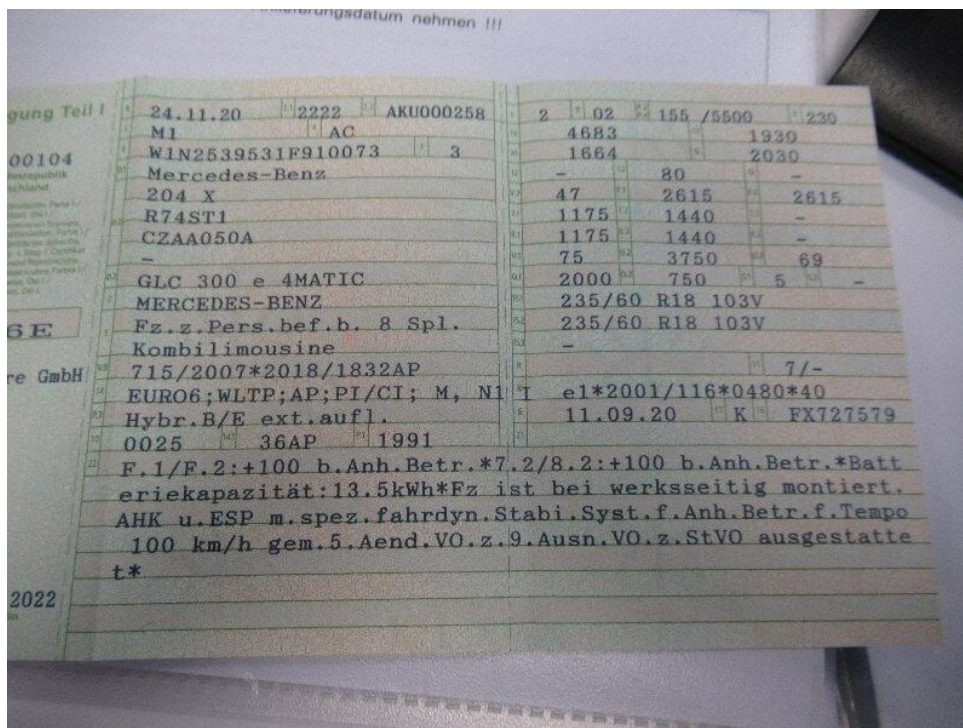 ieferungsdatum nehmen !!!
gung Teil I
00104
6E
re GmbH
2022
24.11.20 2222 AKU000258
M1 AC
W1N2539531F910073 3
Mercedes-Benz
204 X
R74ST1
CZAA050A
–
GLC 300 e 4MATIC
MERCEDES-BENZ
Fz.z.Pers.bef.b. 8 Spl.
Kombilimousine
715/2007*2018/1832AP
EURO6;WLTP;AP;PI/CI; M, N1 I
Hybr.B/E ext.aufl.
0025 36AP 1991
2 02 155 /5500 230
4683 1930
1664 2030
– 80 –
47 2615 2615
1175 1440 –
1175 1440 –
75 3750 69
2000 750 5 –
235/60 R18 103V
235/60 R18 103V
–
7/–
e1*2001/116*0480*40
11.09.20 K FX727579
F.1/F.2:+100 b.Anh.Betr.*7.2/8.2:+100 b.Anh.Betr.*Batt
eriekapazität:13.5kWh*Fz ist bei werksseitig montiert.
AHK u.ESP m.spez.fahrdyn.Stabi.Syst.f.Anh.Betr.f.Tempo
100 km/h gem.5.Aend.VO.z.9.Ausn.VO.z.StVO ausgestatte
t*